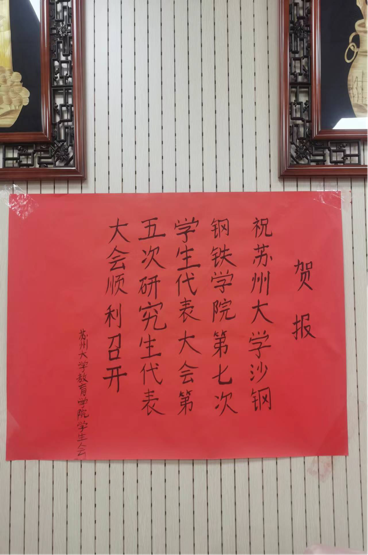 贺报
祝苏州大学沙钢
钢铁学院第七次
学生代表大会第
五次研究生代表
大会顺利召开
苏州大学教育学院学生会